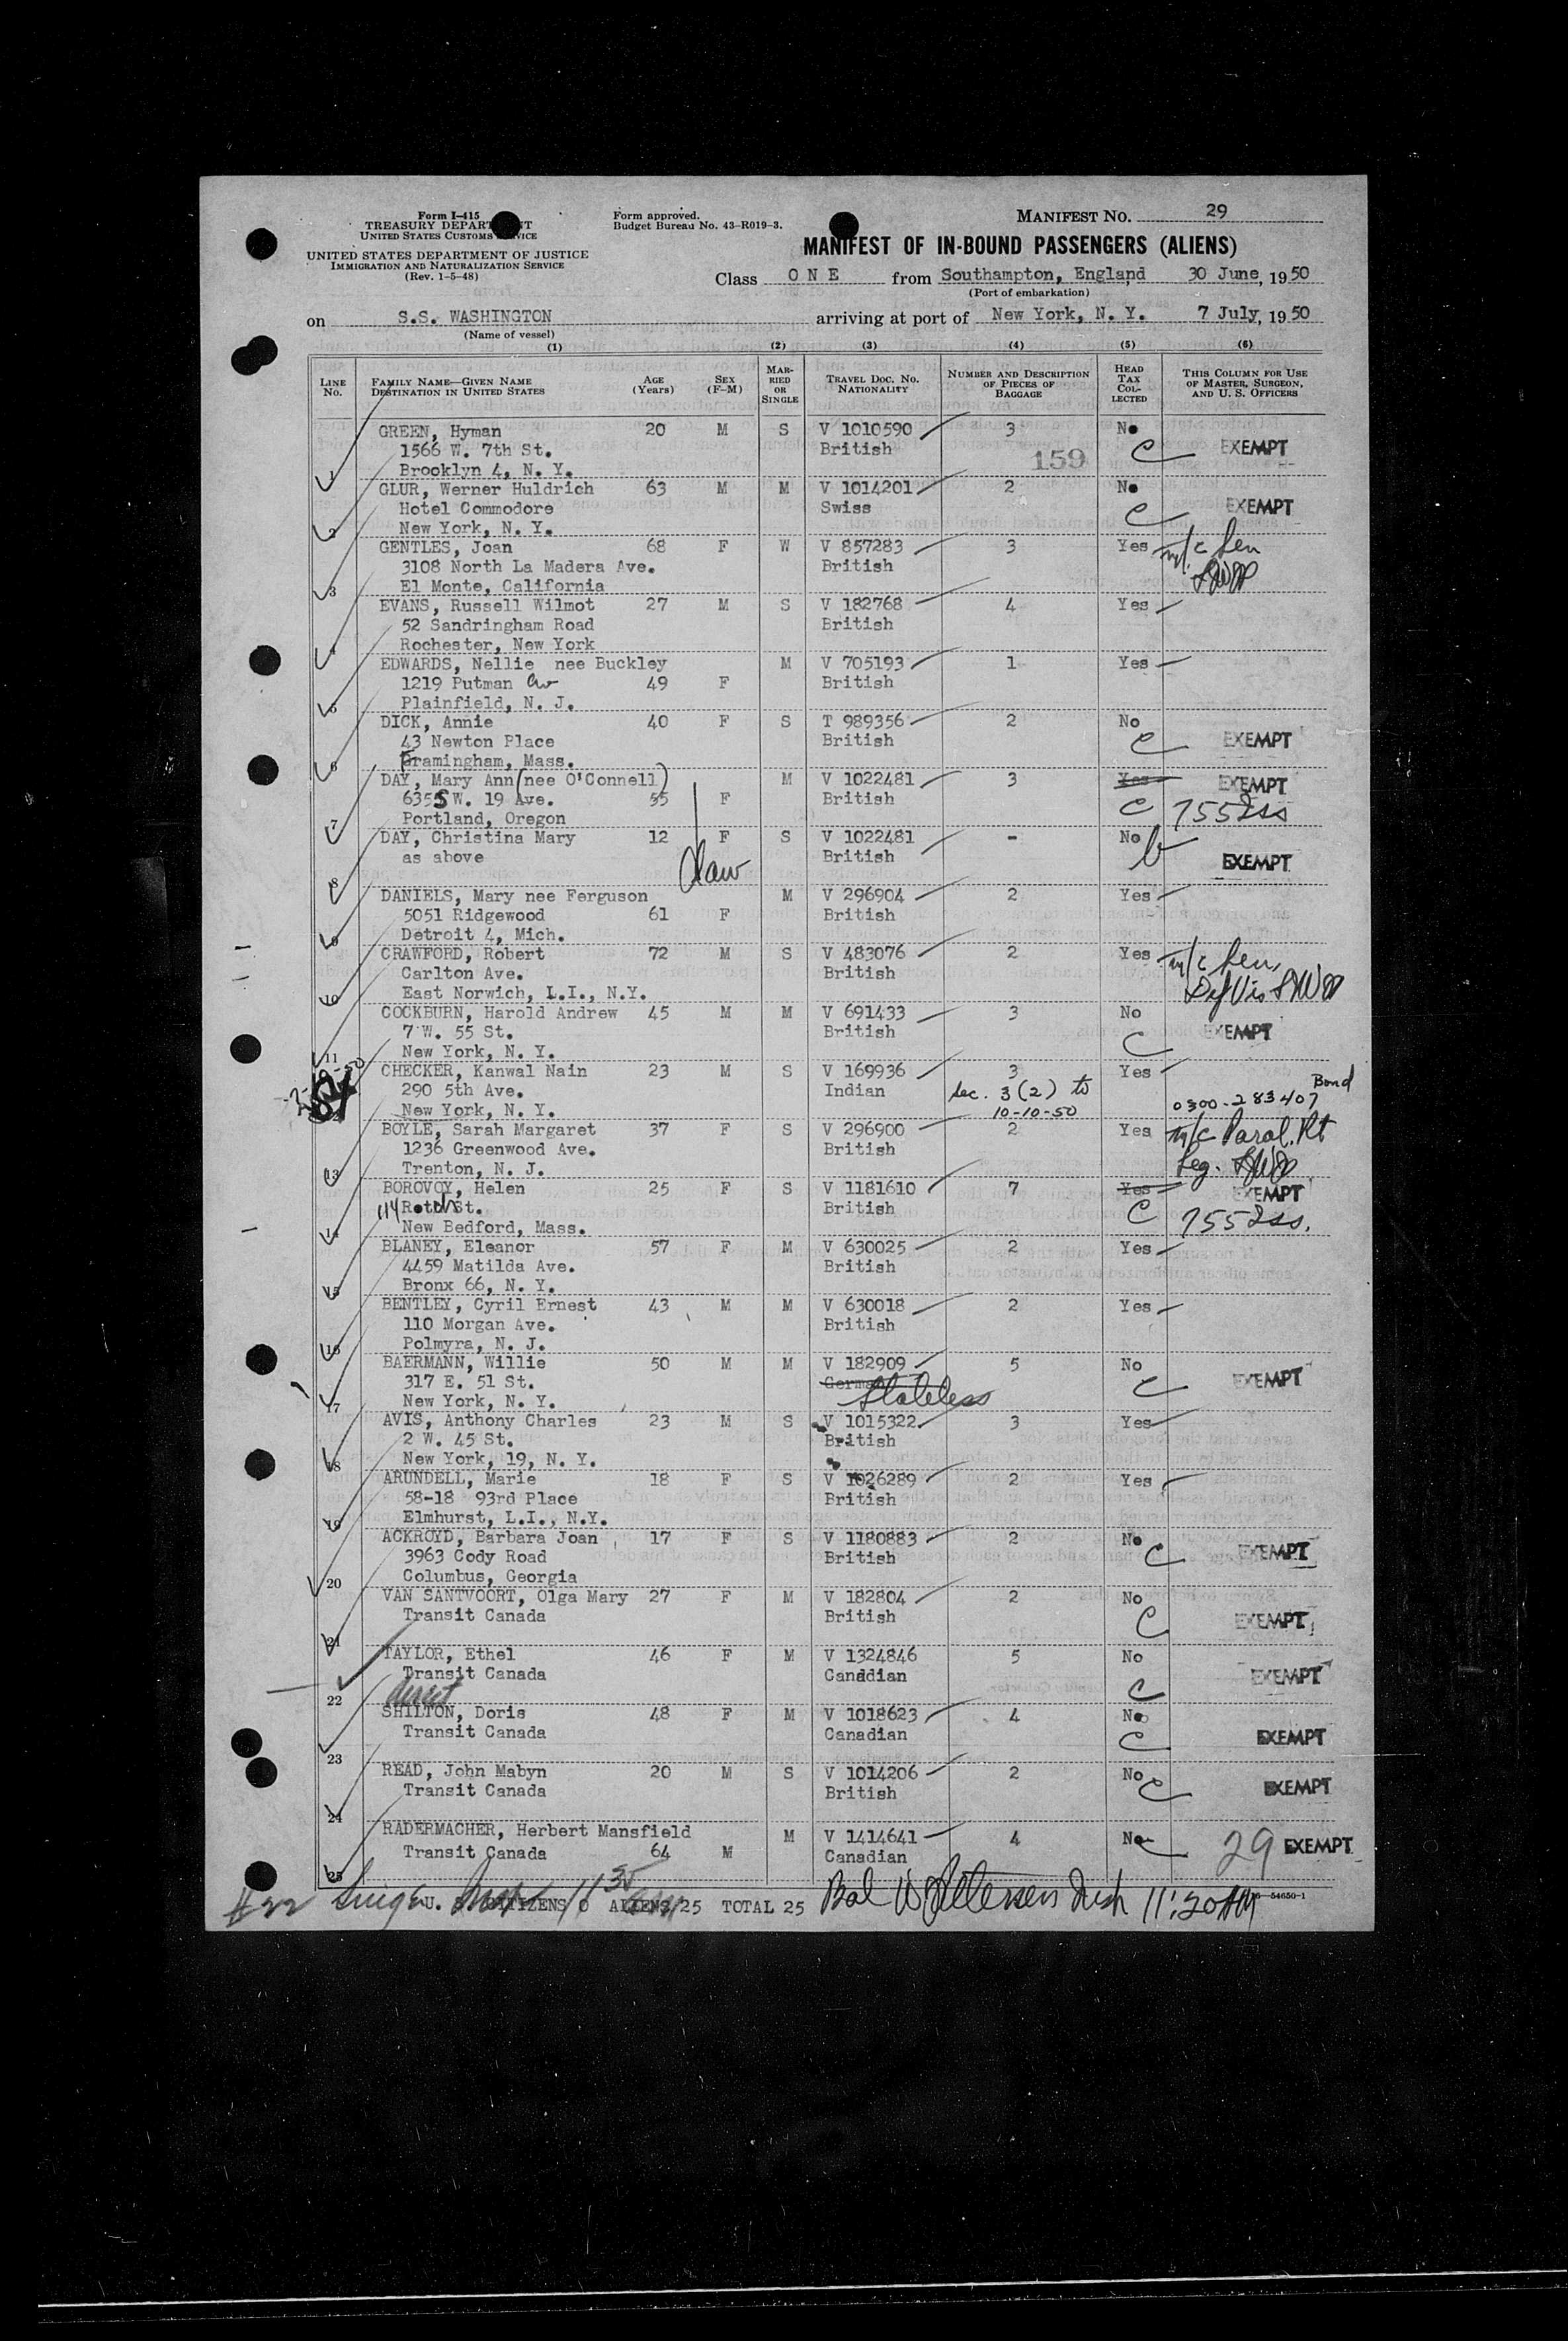 Form I-415
TREASURY DEPARTMENT
UNITED STATES CUSTOMS SERVICE
UNITED STATES DEPARTMENT OF JUSTICE
IMMIGRATION AND NATURALIZATION SERVICE
(Rev. 1-5-48)
Form approved.
Budget Bureau No. 43-R019-3.
MANIFEST NO. 29
MANIFEST OF IN-BOUND PASSENGERS (ALIENS)
Class O N E from Southampton, England 30 June, 1950
(Port of embarkation)
on S.S. WASHINGTON arriving at port of New York, N. Y. 7 July, 1950
(Name of vessel)
(1) (2) (3) (4) (5) (6)
LINE No. FAMILY NAME—GIVEN NAME DESTINATION IN UNITED STATES AGE (Years) SEX (F-M) MARRIED OR SINGLE TRAVEL DOC. NO. NATIONALITY NUMBER AND DESCRIPTION OF PIECES OF BAGGAGE HEAD TAX COLLECTED THIS COLUMN FOR USE OF MASTER, SURGEON, AND U. S. OFFICERS
GREEN, Hyman 20 M S V 1010590 3 No
1566 W. 7th St. British 159 C EXEMPT
1 Brooklyn 4, N. Y.
GLUR, Werner Huldrich 63 M M V 1014201 2 No
Hotel Commodore Swiss C EXEMPT
2 New York, N. Y.
GENTLES, Joan 68 F W V 857283 3 Yes m/c Sen
3108 North La Madera Ave. British
3 El Monte, California
EVANS, Russell Wilmot 27 M S V 182768 4 Yes
52 Sandringham Road British
4 Rochester, New York
EDWARDS, Nellie nee Buckley M V 705193 1 Yes
1219 Putman Av 49 F British
5 Plainfield, N. J.
DICK, Annie 40 F S T 989356 2 No
43 Newton Place British C EXEMPT
6 Framingham, Mass.
DAY, Mary Ann (nee O'Connell) M V 1022481 3 Yes EXEMPT
6355 W. 19 Ave. 55 F British C
7 Portland, Oregon
DAY, Christina Mary 12 F S V 1022481 - No
as above British EXEMPT
8
DANIELS, Mary nee Ferguson M V 296904 2 Yes
5051 Ridgewood 61 F British
9 Detroit 4, Mich.
CRAWFORD, Robert 72 M S V 483076 2 Yes m/c Sen,
Carlton Ave. British Def Vis
10 East Norwich, L.I., N.Y.
COCKBURN, Harold Andrew 45 M M V 691433 3 No
7 W. 55 St. British C EXEMPT
11 New York, N. Y.
CHECKER, Kanwal Nain 23 M S V 169936 3 Yes
290 5th Ave. Indian Sec. 3 (2) to Bond
New York, N. Y. 10-10-50 0300-283407
BOYLE, Sarah Margaret 37 F S V 296900 2 Yes m/c Paral. Rt
1236 Greenwood Ave. British Leg.
13 Trenton, N. J.
BOROVOY, Helen 25 F S V 1181610 7 Yes EXEMPT
114 Rotch St. British C
14 New Bedford, Mass.
BLANEY, Eleanor 57 F M V 630025 2 Yes
4459 Matilda Ave. British
15 Bronx 66, N. Y.
BENTLEY, Cyril Ernest 43 M M V 630018 2 Yes
110 Morgan Ave. British
16 Polmyra, N. J.
BAERMANN, Willie 50 M M V 182909 5 No
317 E. 51 St. German Stateless C EXEMPT
17 New York, N. Y.
AVIS, Anthony Charles 23 M S V 1015322 3 Yes
2 W. 45 St. British
18 New York, 19, N. Y.
ARUNDELL, Marie 18 F S V 1026289 2 Yes
58-18 93rd Place British
19 Elmhurst, L.I., N.Y.
ACKROYD, Barbara Joan 17 F S V 1180883 2 No
3963 Cody Road British C EXEMPT
20 Columbus, Georgia
VAN SANTVOORT, Olga Mary 27 F M V 182804 2 No
Transit Canada British C EXEMPT
21
TAYLOR, Ethel 46 F M V 1324846 5 No
Transit Canada Canadian C EXEMPT
22 direct
SHILTON, Doris 48 F M V 1018623 4 No
Transit Canada Canadian C EXEMPT
23
READ, John Mabyn 20 M S V 1014206 2 No
Transit Canada British C EXEMPT
24
RADERMACHER, Herbert Mansfield M V 1414641 4 No
Transit Canada 64 M Canadian 29 EXEMPT
25
#22 U. S. CITIZENS 0 ALIENS 25 TOTAL 25 11:20 AM 16-54650-1